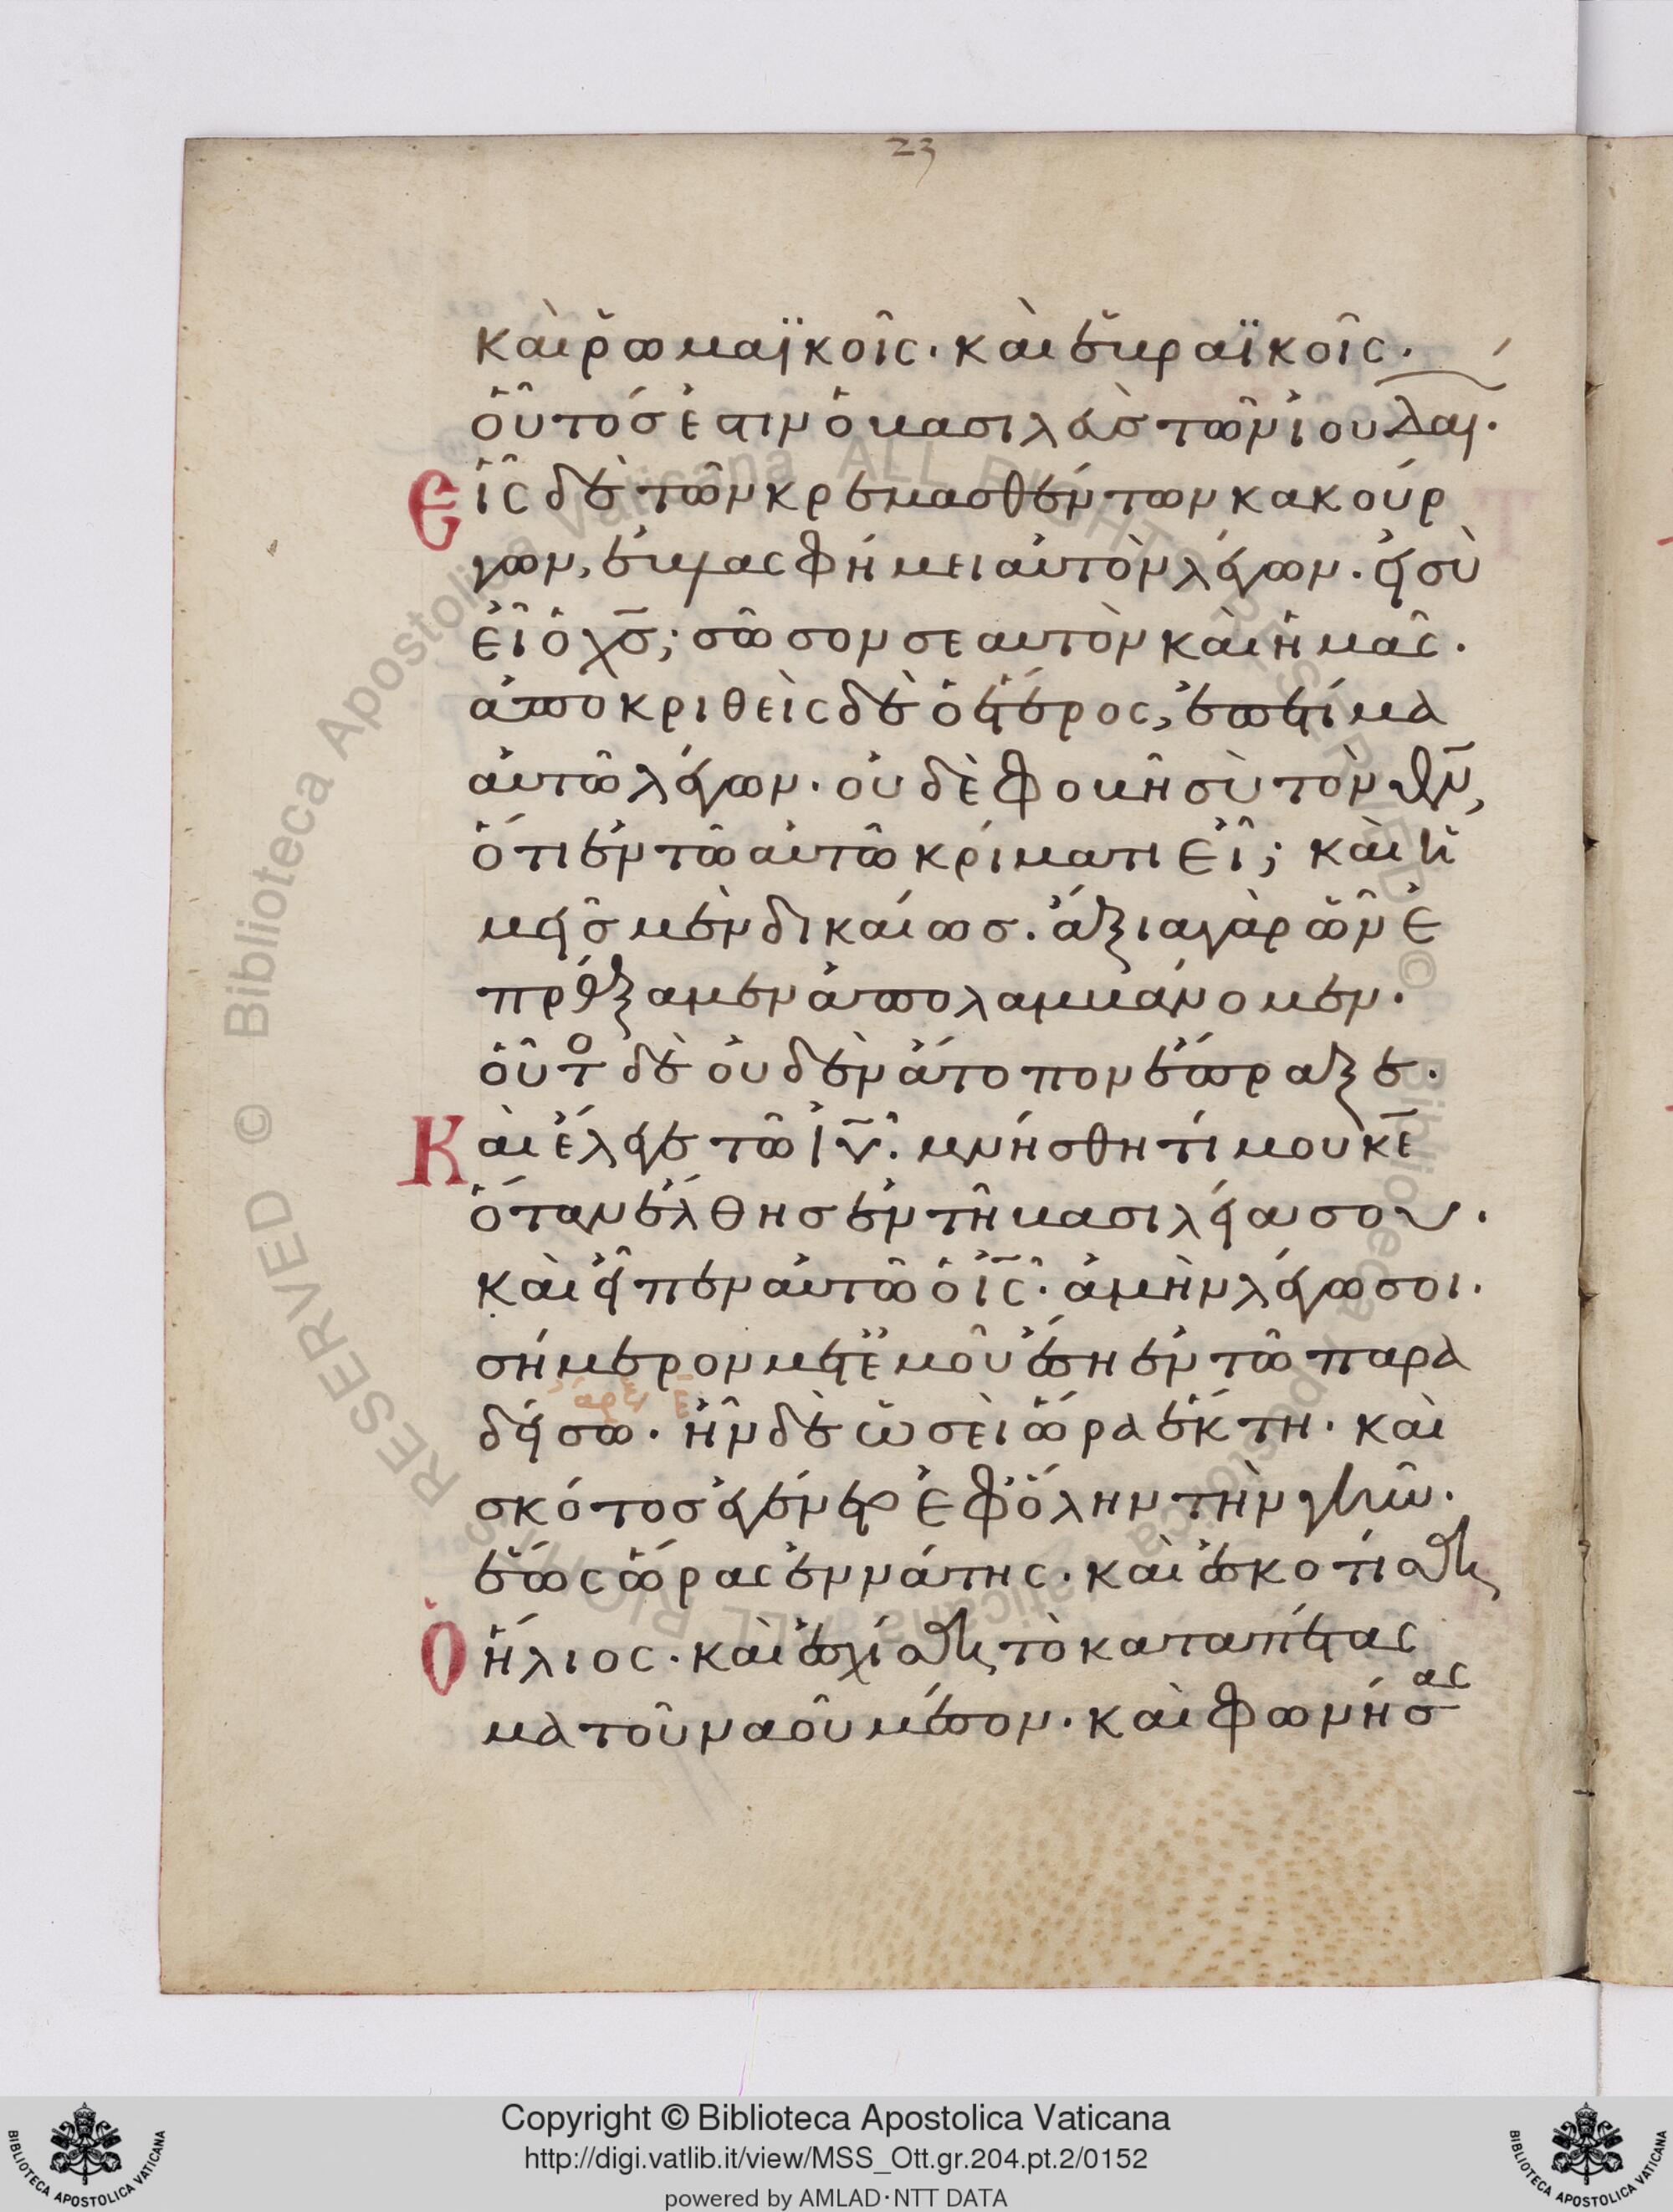 23
καὶ ῥωμαϊκοῖς· καὶ ἑβραϊκοῖς·
οὗτός ἐστιν ὁ βασιλεὺς τῶν ἰουδαι·
Εἷς δὲ τῶν κρεμασθέντων κακούρ
γων, ἐβλασφήμει αὐτὸν λέγων· εἰ σὺ
εἶ ὁ χς̅; σῶσον σεαυτὸν καὶ ἡμᾶς·
ἀποκριθεὶς δὲ ὁ ἕτερος, ἐπετίμα
αὐτῶ λέγων· οὐδὲ φοβῆ σὺ τὸν θν̅,
ὅτι ἐν τῶ αὐτῶ κρίματι εἶ; καὶ ἡ
μεῖς μὲν δικαίως· ἄξια γὰρ ὧν ἐ
πράξαμεν ἀπολαμβάνομεν·
οὗτο δὲ οὐδὲν ἄτοπον ἔπραξε·
Καὶ ἔλεγε τῶ ιυ̅· μνήσθητί μου κε̅
ὅταν ἔλθης ἐν τῆ βασιλεία σου·
καὶ εἶπεν αὐτῶ ὁ ις̅· ἀμὴν λέγω σοι·
σήμερον μετ' ἐμοῦ ἔση ἐν τῶ παρα
δείσω· ἦν δὲ ὡσεὶ ὥρα ἕκτη· καὶ
σκότος ἐγένετο ἐφ' ὅλην τὴν γῆν·
ἕως ὥρας ἐννάτης· καὶ ἐσκοτίσθη
Ὁ ἥλιος· καὶ ἐσχίσθη τὸ καταπέτας
μα τοῦ ναοῦ μέσον· καὶ φωνήσας
© Biblioteca Apostolica Vaticana ALL RIGHTS RESERVED © Biblioteca Apostolica Vaticana ALL RIGHTS RESERVED
Copyright © Biblioteca Apostolica Vaticana
http://digi.vatlib.it/view/MSS_Ott.gr.204.pt.2/0152
powered by AMLAD·NTT DATA
BIBLIOTECA APOSTOLICA VATICANA
BIBLIOTECA APOSTOLICA VATICANA